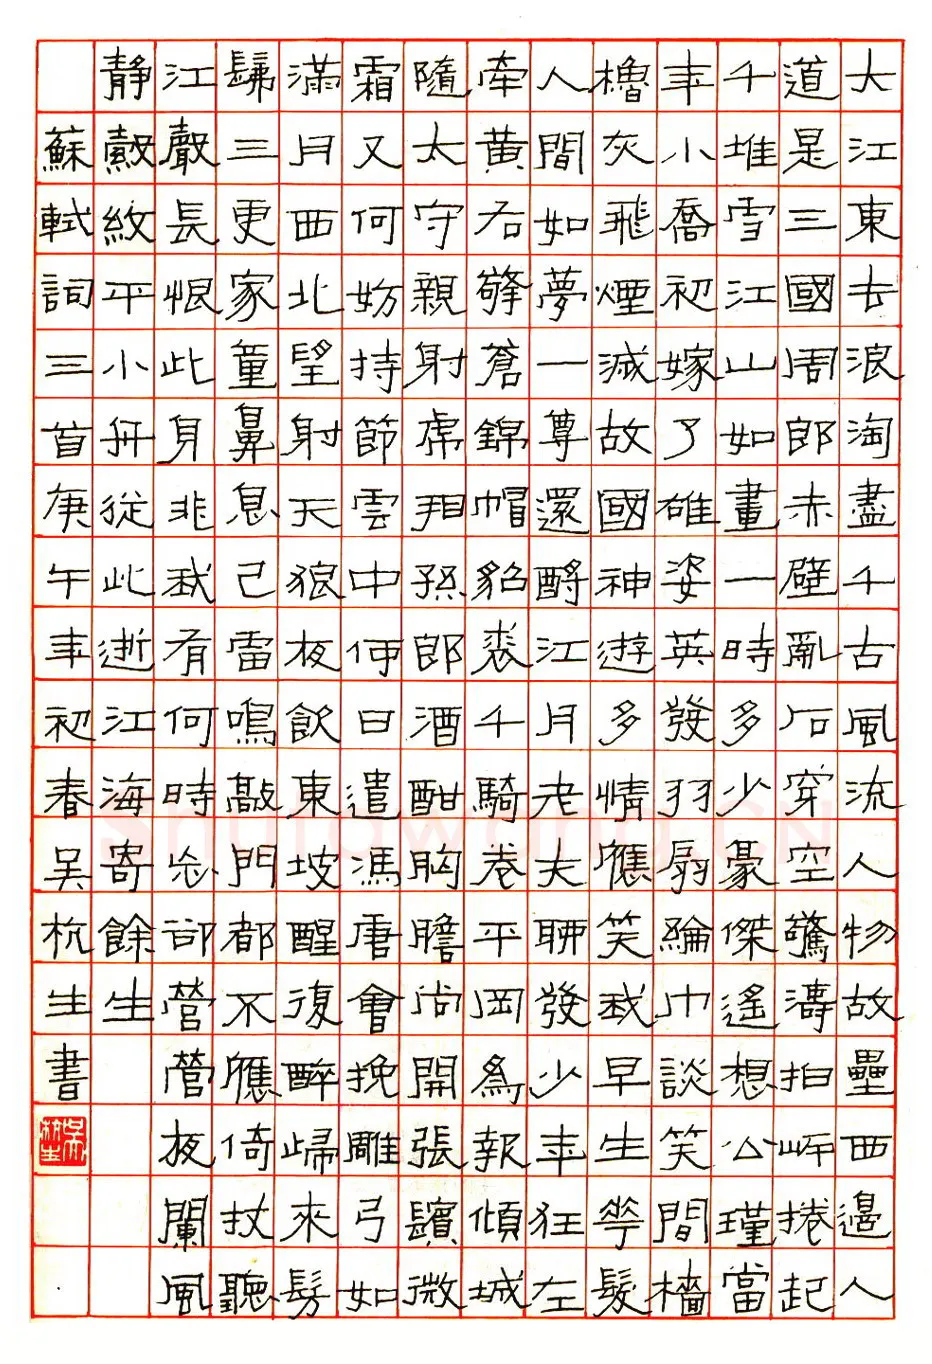 大江東去浪淘盡千古風流人物故壘西邊人
道是三國周郎赤壁亂石穿空驚濤拍岸捲起
千堆雪江山如畫一時多少豪傑遙想公瑾當
年小喬初嫁了雄姿英發羽扇綸巾談笑間檣
櫓灰飛煙滅故國神遊多情應笑我早生華髮
人間如夢一尊還酹江月老夫聊發少年狂左
牽黃右擎蒼錦帽貂裘千騎卷平岡為報傾城
隨太守親射虎看孫郎酒酣胸膽尚開張鬢微
霜又何妨持節雲中何日遣馮唐會挽雕弓如
滿月西北望射天狼夜飲東坡醒復醉歸來髣
髴三更家童鼻息已雷鳴敲門都不應倚杖聽
江聲長恨此身非我有何時忘卻營營夜闌風
靜縠紋平小舟從此逝江海寄餘生
蘇軾詞三首庚午年初春吳杭生書